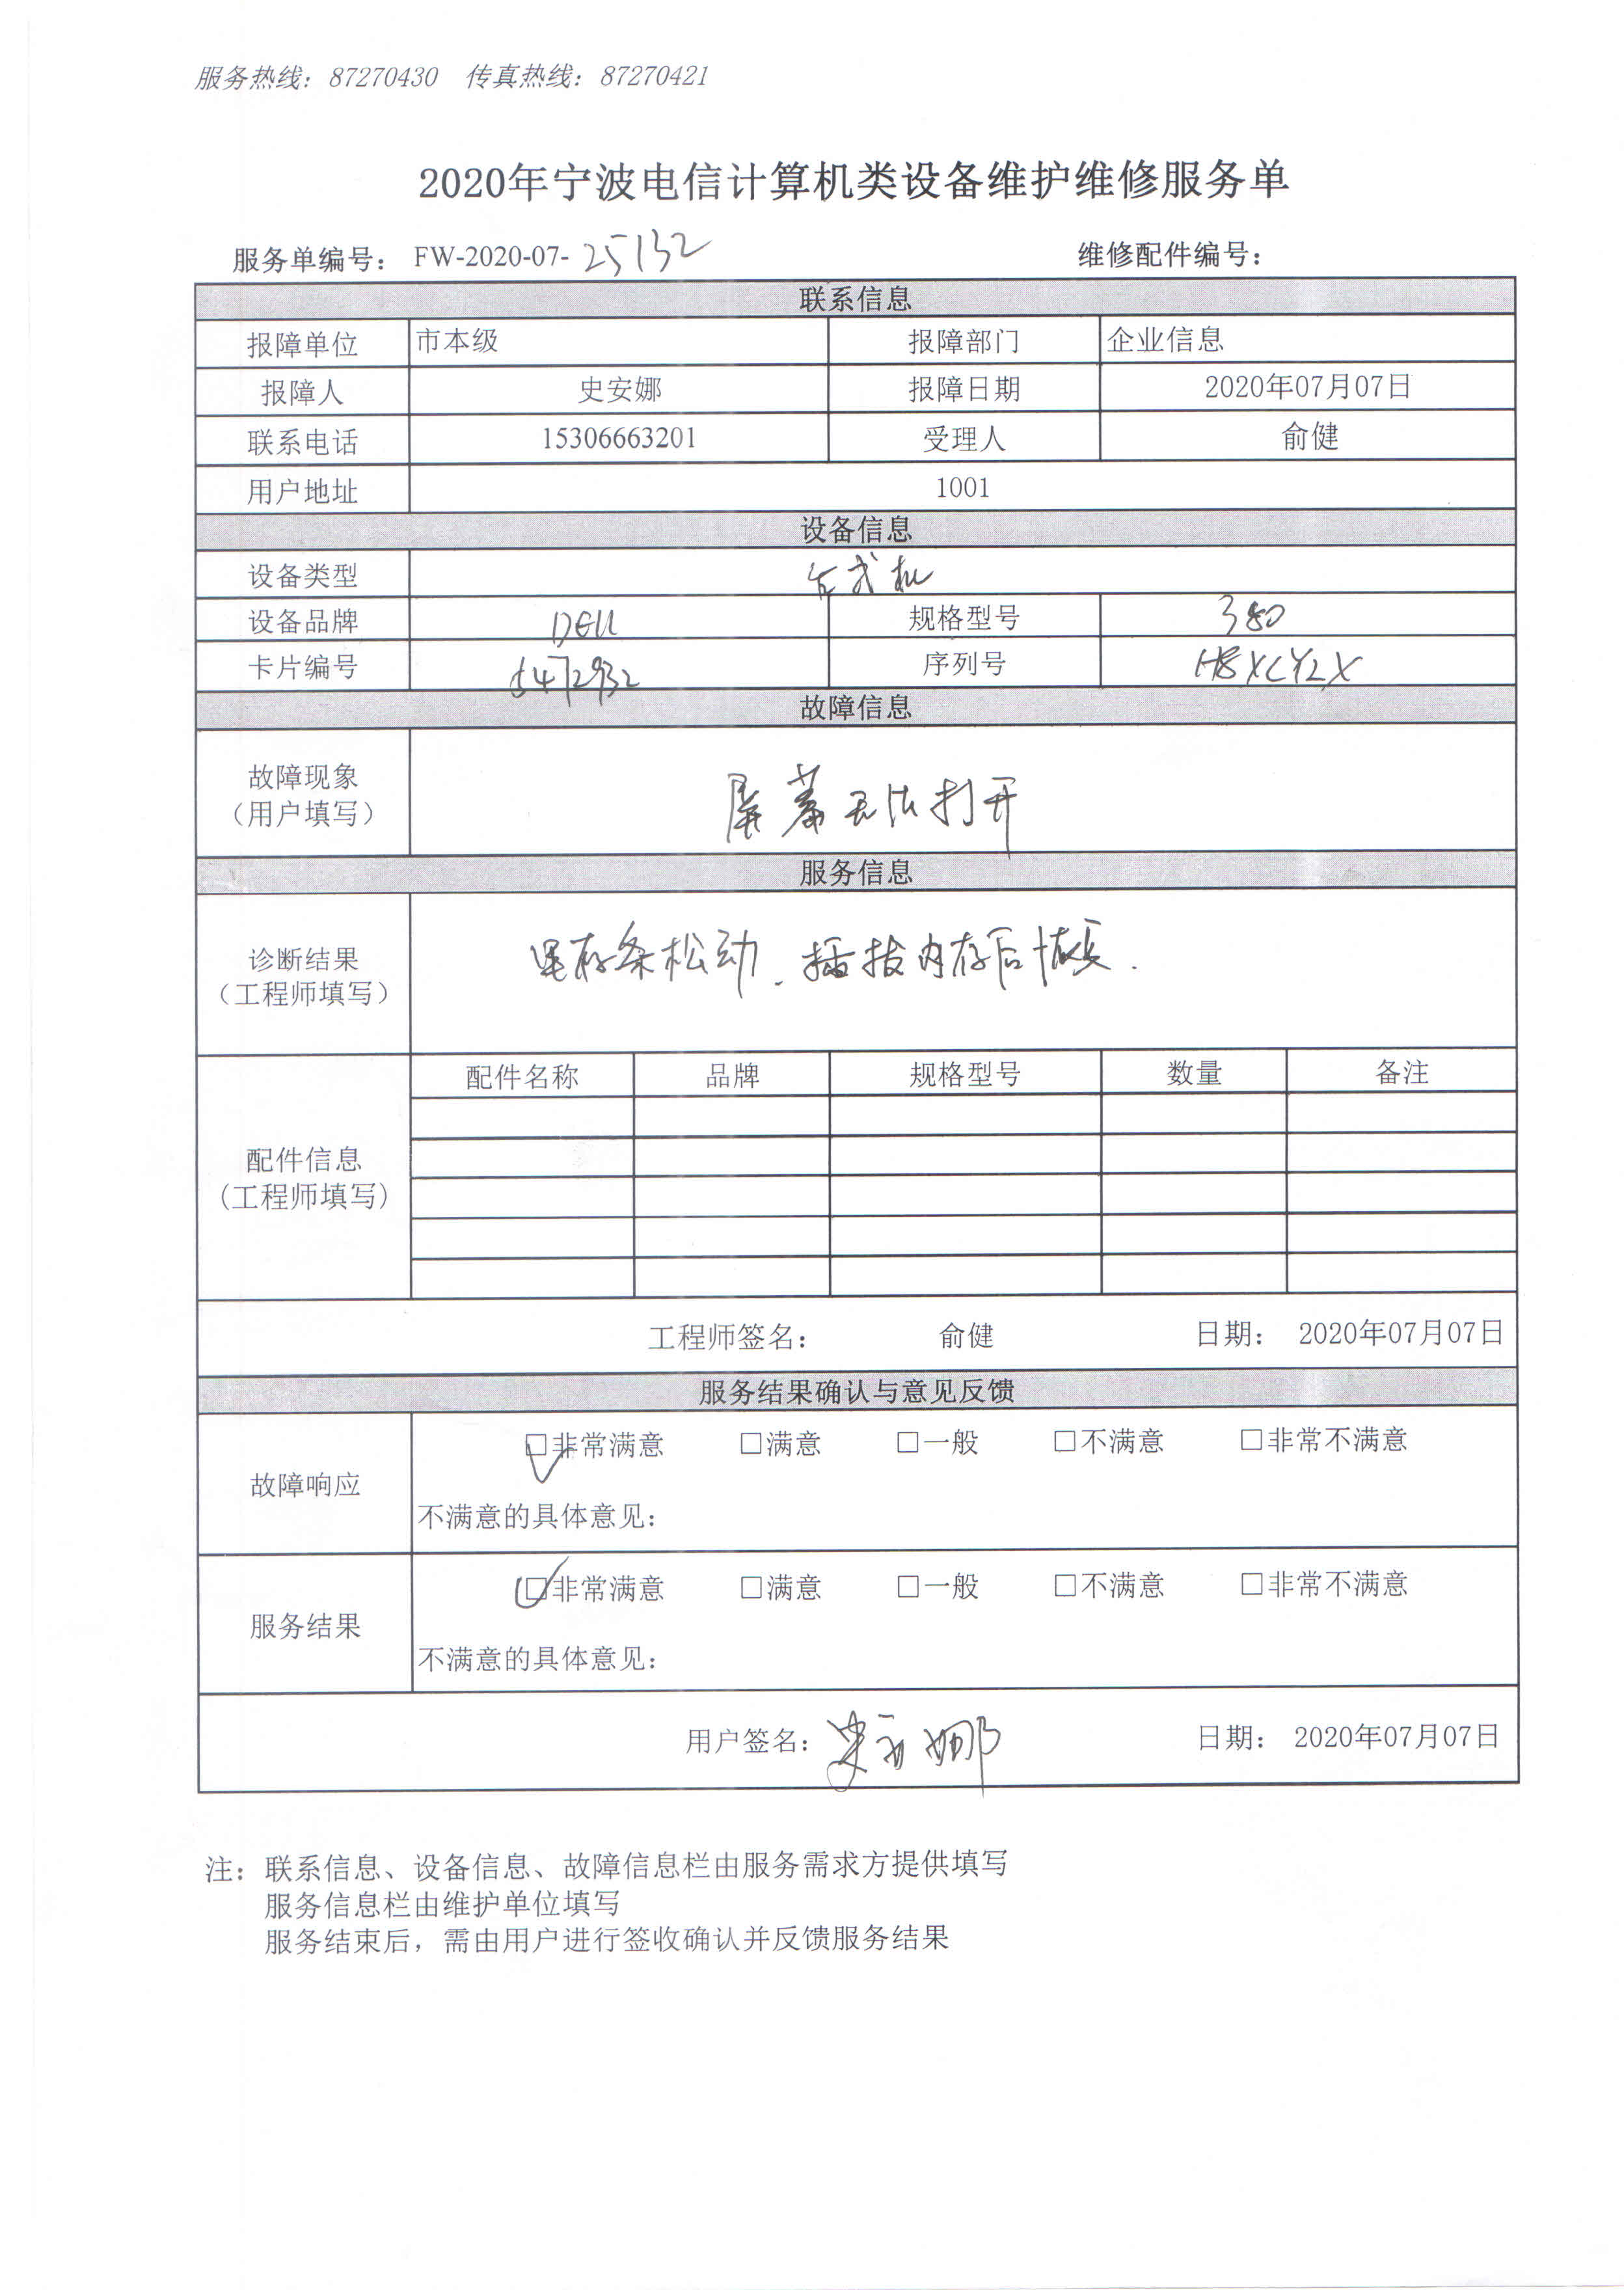 服务热线：87270430 传真热线：87270421
2020年宁波电信计算机类设备维护维修服务单
服务单编号： FW-2020-07-25132 维修配件编号：
联系信息
报障单位 市本级 报障部门 企业信息
报障人 史安娜 报障日期 2020年07月07日
联系电话 15306663201 受理人 俞健
用户地址 1001
设备信息
设备类型 台式机
设备品牌 DELL 规格型号 380
卡片编号 序列号 H8XCY2X
故障信息
故障现象
（用户填写）
屏幕无法打开
服务信息
诊断结果
（工程师填写）
存条松动．插拔内存后恢复．
配件信息
（工程师填写）
配件名称 品牌 规格型号 数量 备注
工程师签名： 俞健 日期： 2020年07月07日
服务结果确认与意见反馈
故障响应
□非常满意 □满意 □一般 □不满意 □非常不满意
不满意的具体意见：
服务结果
□非常满意 □满意 □一般 □不满意 □非常不满意
不满意的具体意见：
用户签名： 史安娜 日期： 2020年07月07日
注：联系信息、设备信息、故障信息栏由服务需求方提供填写
服务信息栏由维护单位填写
服务结束后，需由用户进行签收确认并反馈服务结果